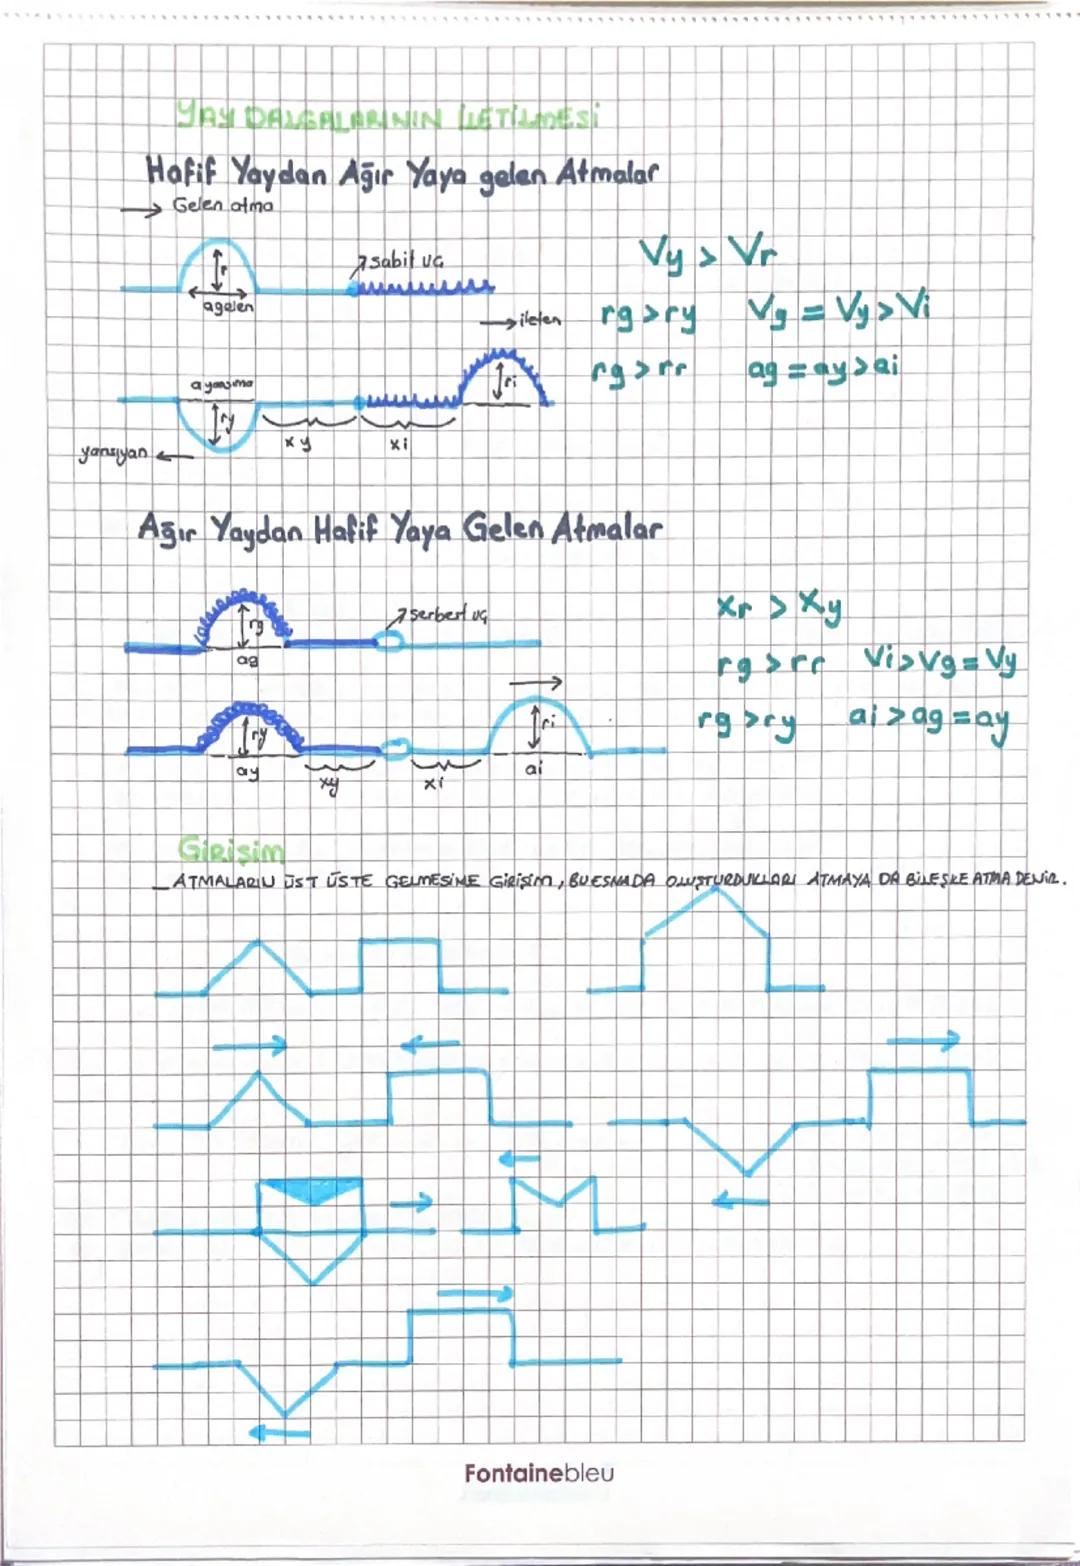 YAY DALGALARININ İLETİLMESİ
Hafif Yaydan Ağır Yaya gelen Atmalar
→ Gelen atma
r
agelen
sabit uç
Vy > Vr
→ iletilen
rg > ry Vg = Vy > Vi
rg > rr ag = ay > ai
ayansıma
ry
ri
xy
xi
yansıyan ←
Ağır Yaydan Hafif Yaya Gelen Atmalar
rg
ag
serbest uç
Xr > Xy
rg > rr Vi > Vg = Vy
rg > ry ai > ag = ay
ry
ri
ay
xy
xi
ai
Girişim
_ ATMALARIN ÜST ÜSTE GELMESİNE GİRİŞİM, BU ESNADA OLUŞTURDUKLARI ATMAYA DA BİLEŞKE ATMA DENİR.
Fontainebleu